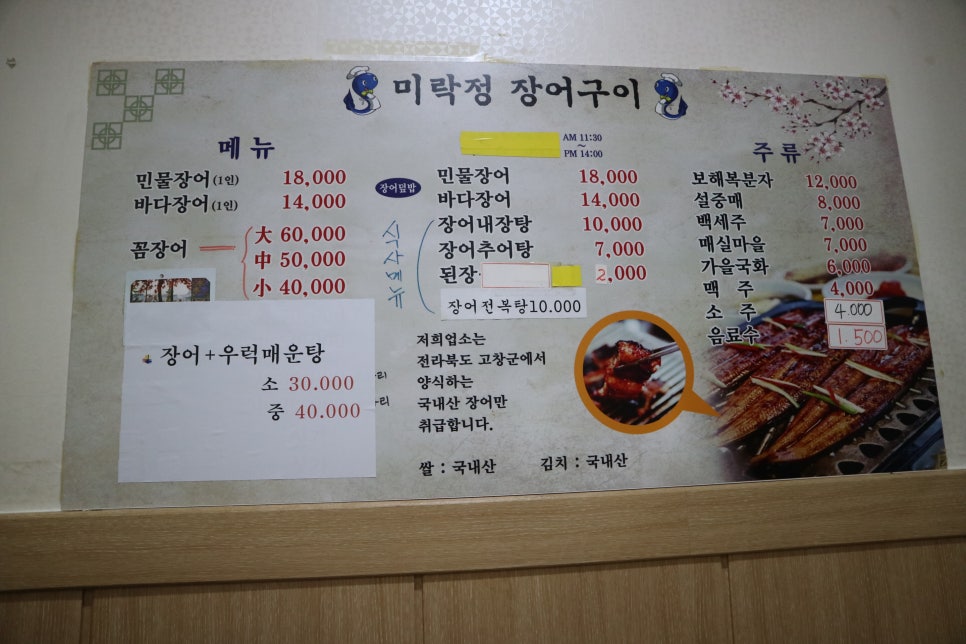 미락정 장어구이
메 뉴
민물장어(1인) 18,000
바다장어(1인) 14,000
꼼장어
大 60,000
中 50,000
小 40,000
장어+우럭매운탕
소 30.000
중 40.000
리
리
AM 11:30
~
PM 14:00
장어덮밥
민물장어 18,000
바다장어 14,000
식사메뉴
장어내장탕 10,000
장어추어탕 7,000
된장 2,000
장어전복탕10.000
저희업소는
전라북도 고창군에서
양식하는
국내산 장어만
취급합니다.
쌀 : 국내산 김치 : 국내산
주 류
보해복분자 12,000
설중매 8,000
백세주 7,000
매실마을 7,000
가을국화 6,000
맥 주 4,000
소 주 4.000
음료수 1.500